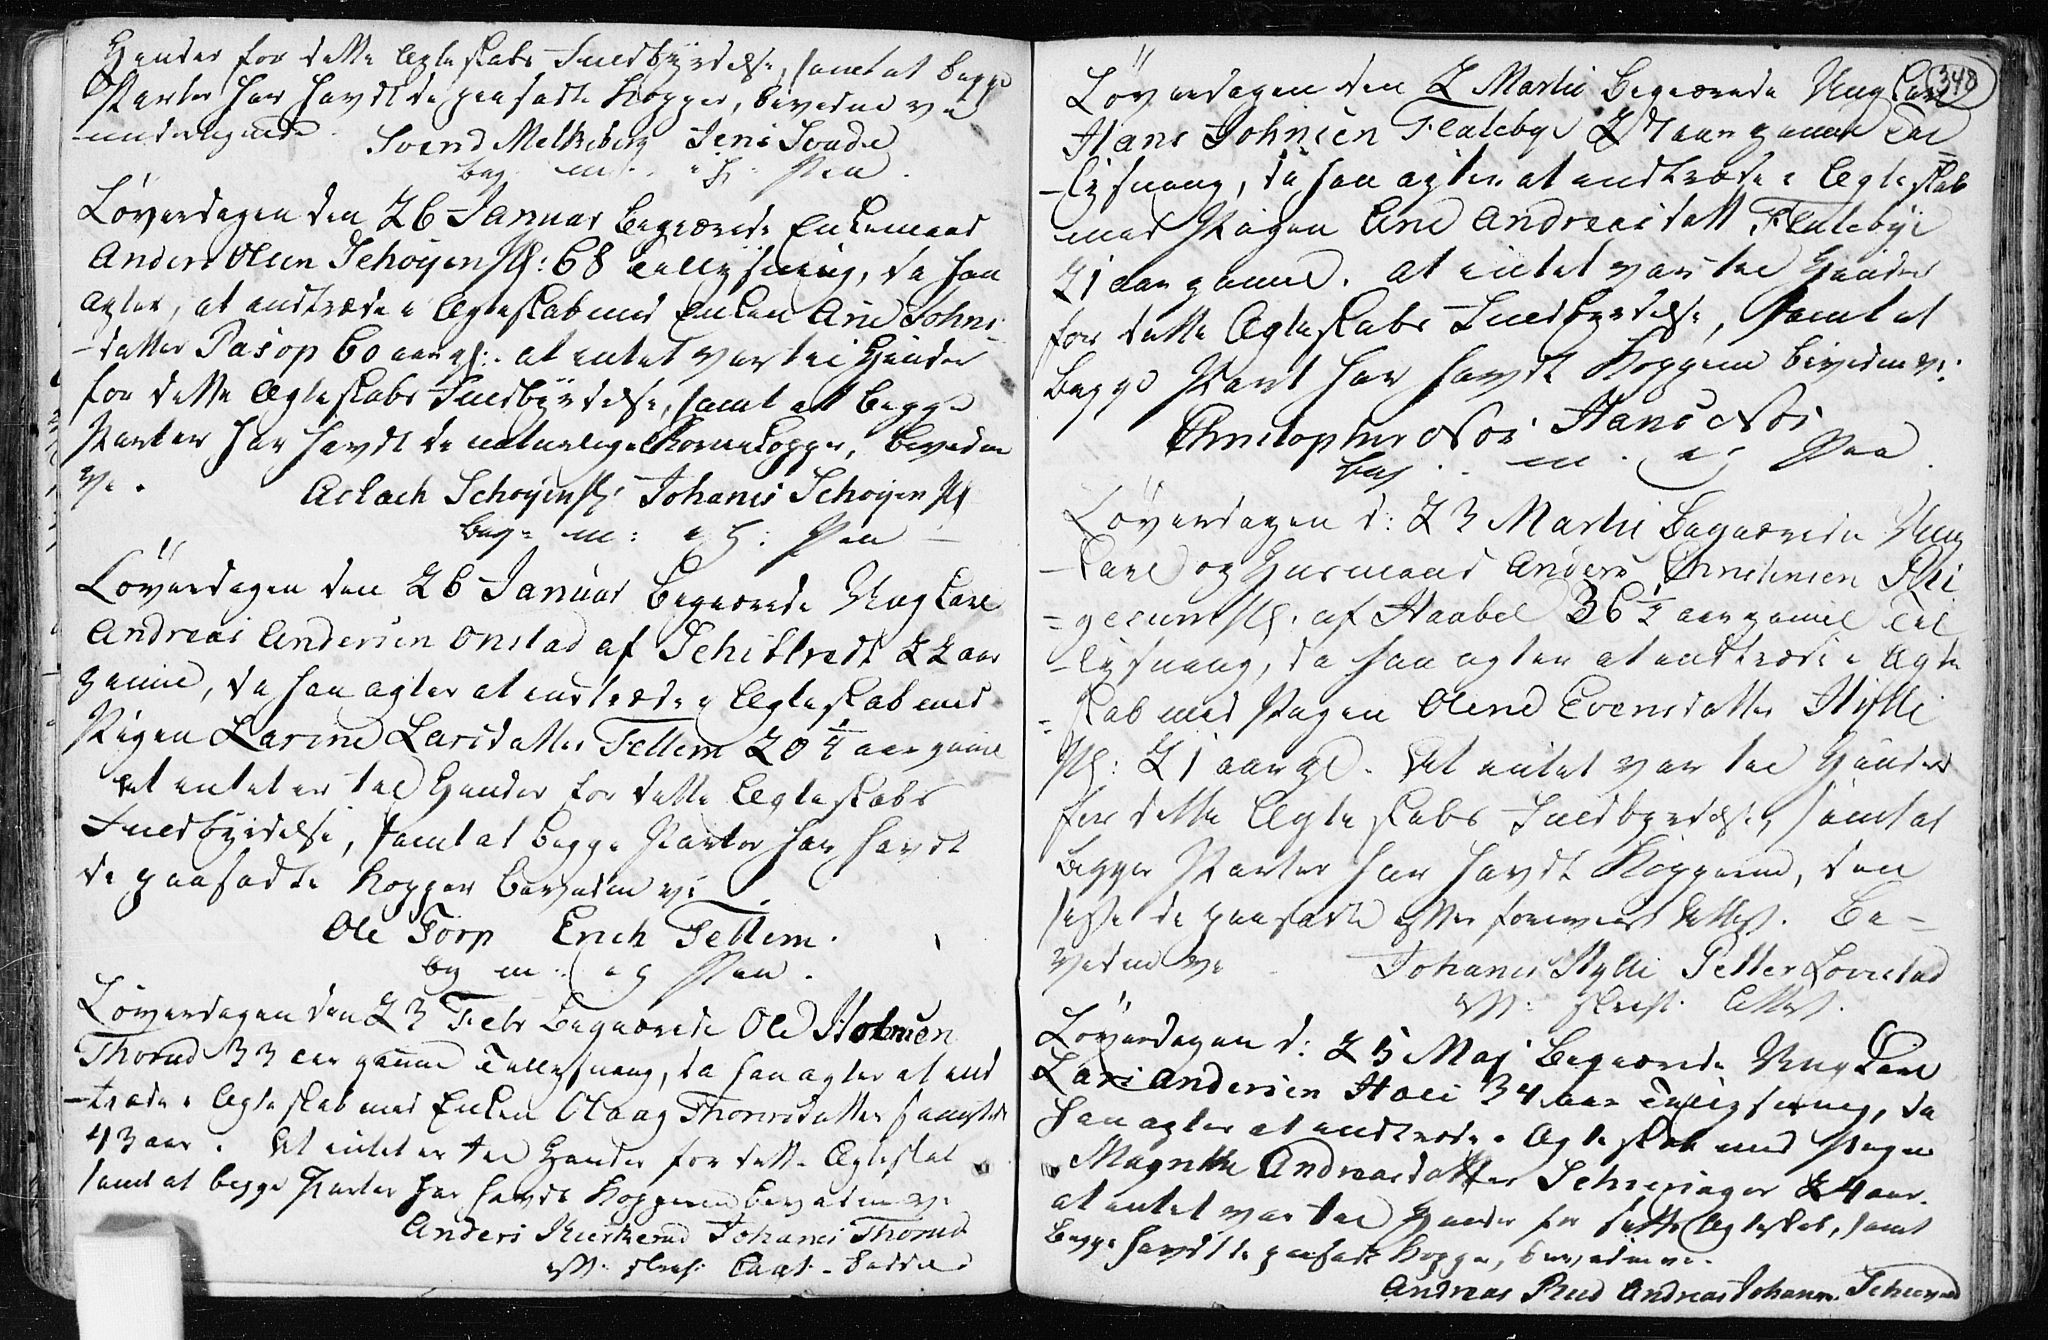 Hinder for dette Ægteskabs Fuldbyrdelse, samt at begge
Parter har havdt de paasadte Kopper, bevidne vi
-underlignede.
Svend Melkeberg Jens Svadu
beg m. i h: Pen.
Løverdagen den 26 Januar begiærede Enkemand
Anders Olsen Schøyen Pl: 68 Tillysning, da han
agter, at indtræde i Ægteskab med Enken Ane Johns-
-datter Pasop 60 aar gl:. at intet var til Hinder
for dette Ægteskabs Fuldbyrdelse, samt at begge
Parter har havdt de naturlige Bornekopper, bevidne
Vi.
Aslach Schøyen Pl: Johanes Schøyen Pl
beg: m: i h: Pen
Løverdagen den 26 Januar begiærede Ung Karl
Andreas Andersen Onstad af Schibtvedt 22 aar
gamel, da han agter at indtræde i Ægteskab med
Pigen Larine Larsdatter Tettem 20 1/4 aar gamel
at intet er til Hinder for dette Ægteskabs
Fuldbyrdelse, samt at begge Parter har havdt
de paasadte Kopper bevidne vi
Ole Torp Erich Tettem.
beg m: i h Pen.
Løverdagen den 23 Febr begiærede Ole Holmsen
Thorud 33 aar gamel Tillysning, da han agter at ind
-træde i Ægteskab med Enken Olaug Thorsdatter samsteds
43 aar. At intet er til Hinder for dette Ægteskab
samt at begge Parter har havdt Kopperne bevidne vi
Anders Kirkerud Johanes Thorud
Vi: skrift:
348
Løverdagen den 2 Martii begiærede Ung Karl
Hans Johnsen Flatebye 27 aar gamel Til
-lysning, da han agter at indtræde i Ægteskab
med Pigen Ane Andreasdatt Flatebye
21 aar gamel. at intet var til Hinder
for dette Ægteskabs Fuldbyrdelse, samt at
begge Part har havdt Kopperne bevidne vi:
Christopher Noi Hans Noi
beg. m. i h Pen.
Løverdagen d: 23 Martii begiærede Ung
-Karl og Husmand Anders Christensen Pli
=geeum Pl. af Haabel 36 1/2 aar gamel Til
-lysning, da han agter at indtræde i Ægte
=skab med Pigen Olene Evensdatter Hylli
Pl: 21 aar gl. At intet var til Hinder
for dette Ægteskabs Fuldbyrdelse, samt at
begge Parter har havdt Kopperne, den
siste de paasatte efter foreviist Attest. Be-
vidne vi Johanes Hylli Petter Lovestad
Vi: skrift: Attest.
Løverdagen d: 25 Maj begiærede Ung Karl
Lars Andersen Hoel 34 aar Tillysning, da
han agter at indtræde i Ægteskab med Pigen
Magrethe Andreasdatter Schreninger 24 aar.
at intet var til Hinder for dette Ægteskab, samt
begge havdt de paasadte Kopper, bevidne vi.
Andreas Rud Andreas Johann.